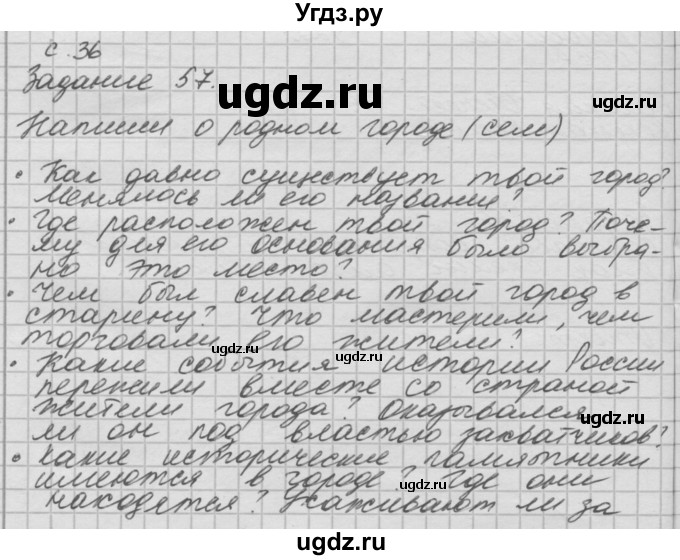 Угдз.ру
с. 36
Задание 57.
ugdz.ru
Напиши о родном городе (селе)
• Как давно существует твой город?
Менялось ли его название?
• Где расположен твой город? Поче-
му для его основания было выбра-
но это место?
• Чем был славен твой город в
старину? Что мастерили, чем
торговали его жители?
• Какие события истории России
пережили вместе со страной
жители города? Оказывался
ли он под властью захватчиков?
• Какие исторические памятники
имеются в городе? Где они
находятся? Ухаживают ли за
ugdz.ru
ugdz.ru
ugdz.ru
ugdz.ru
ugdz.ru
ugdz.ru